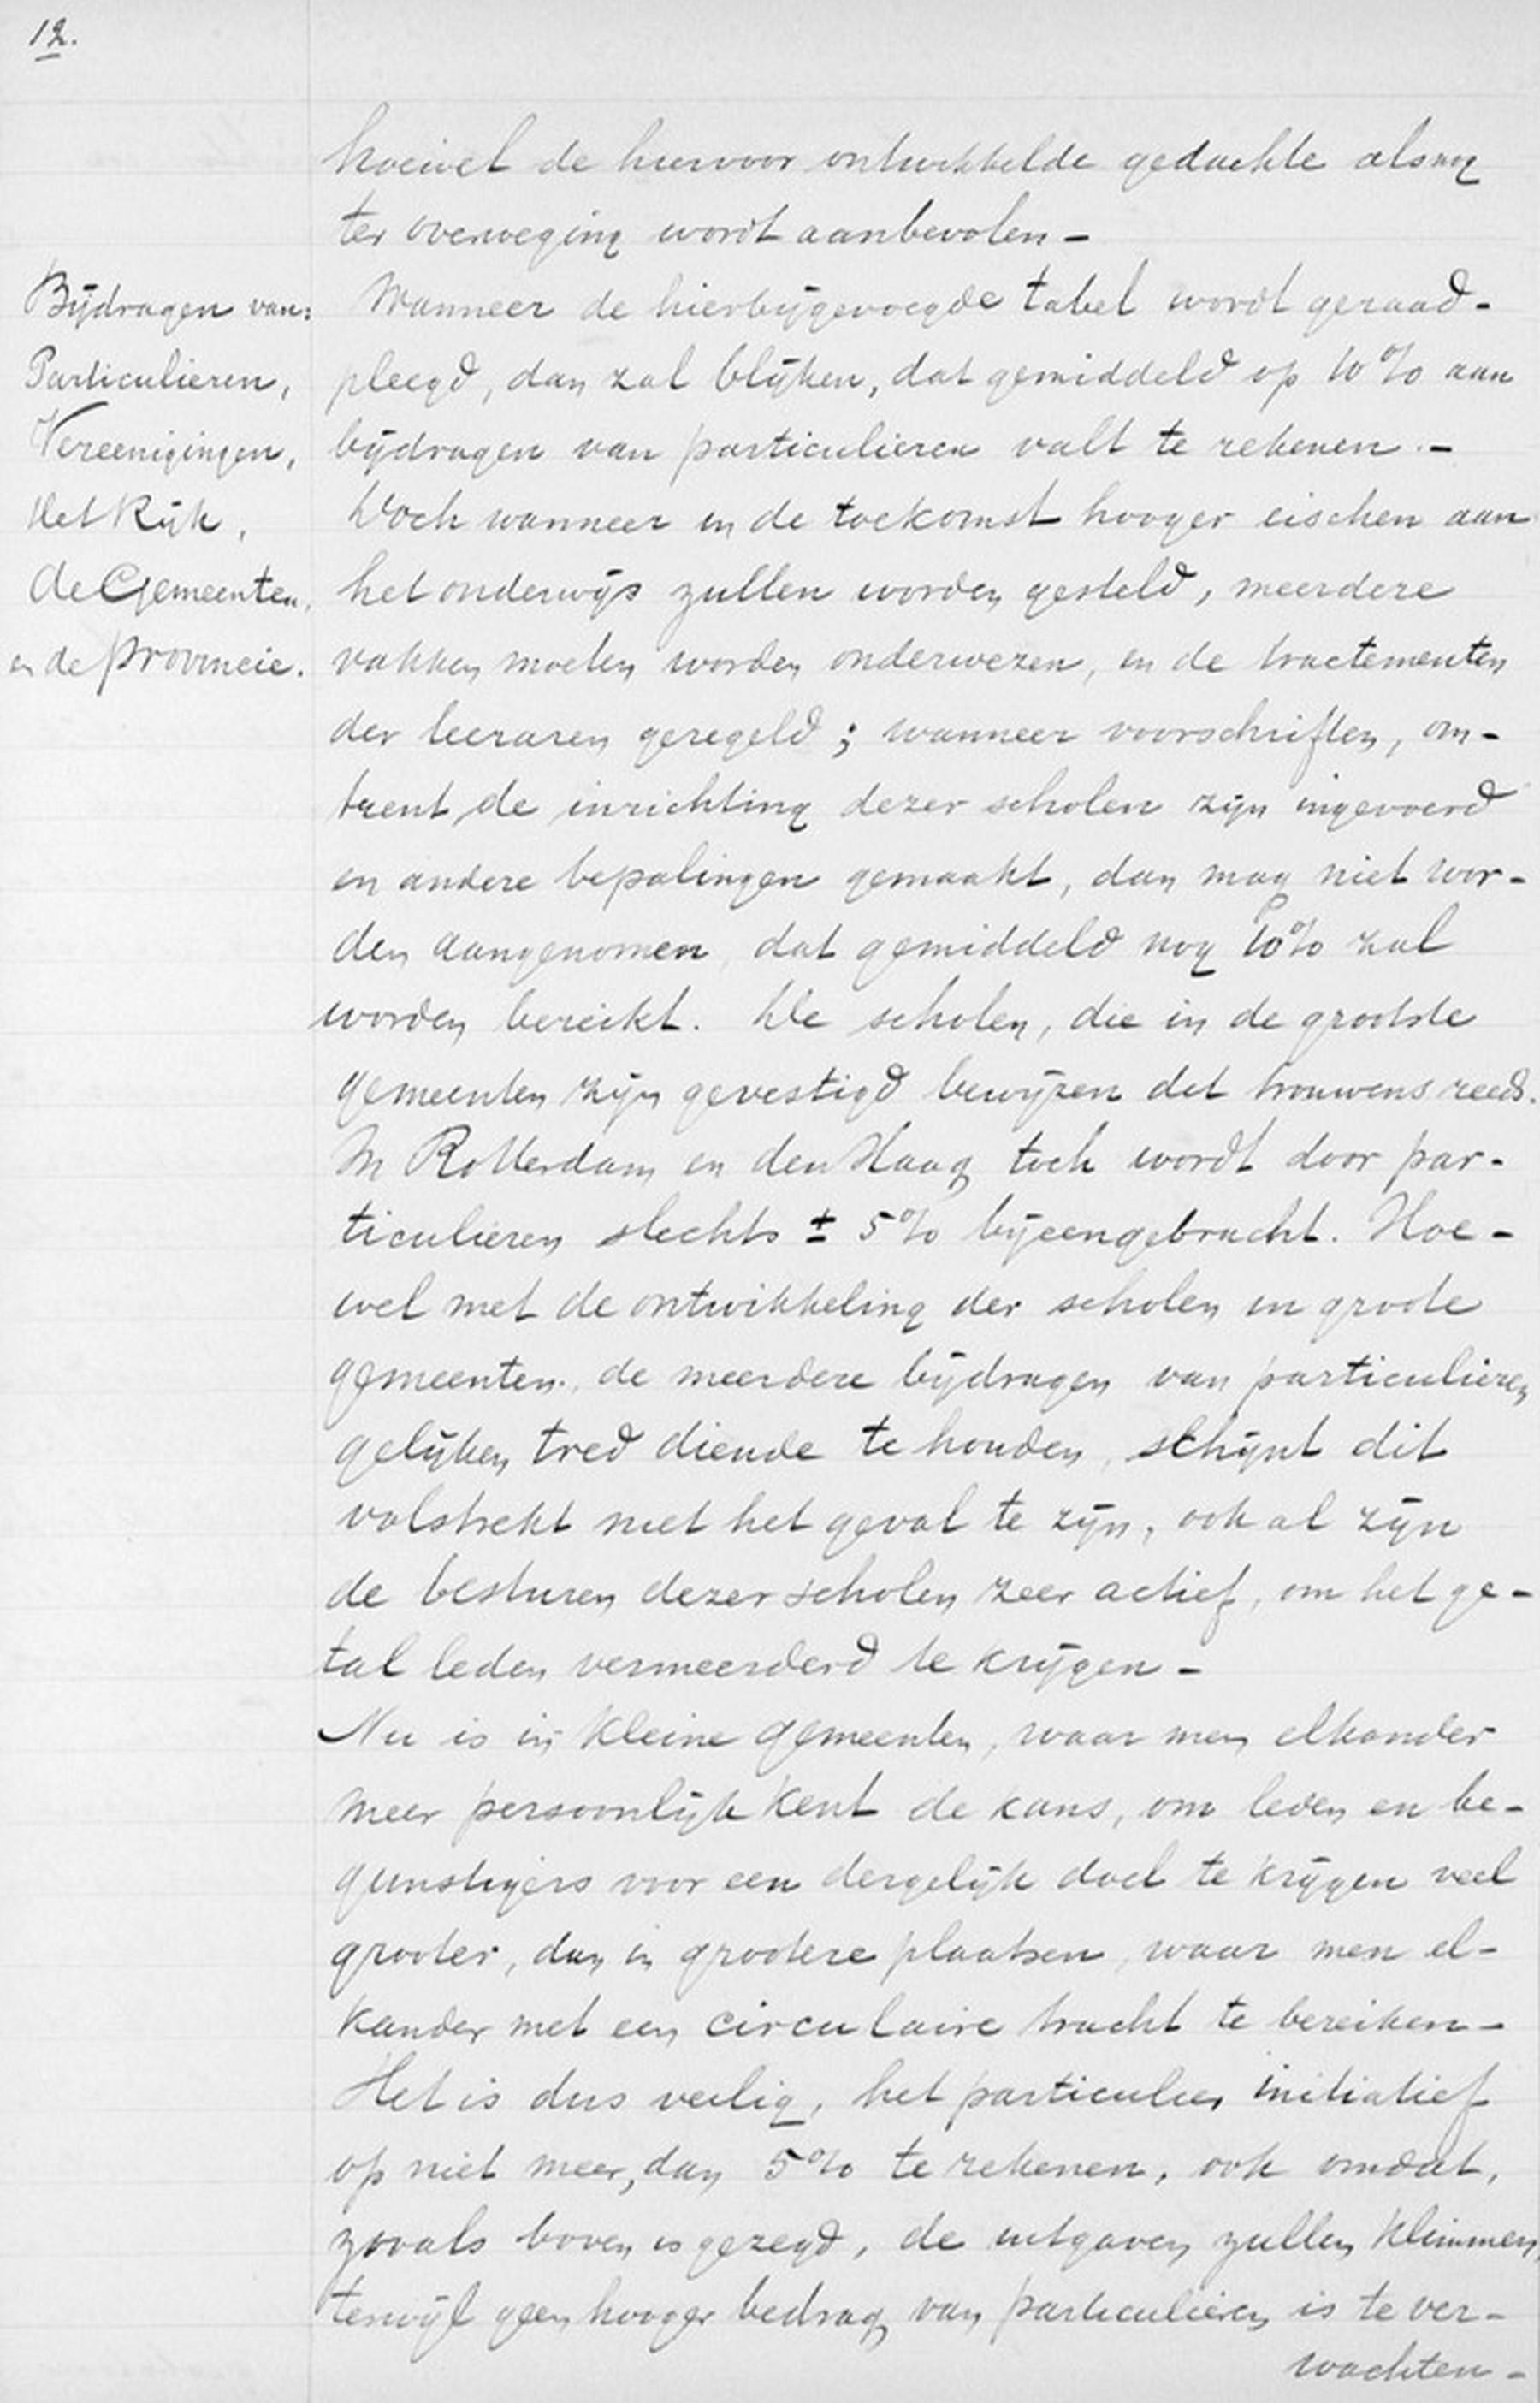 12.
hoewel de hiervoor ontwikkelde gedachte alsnog
ter overweging wordt aanbevolen -
Bijdragen van:
Particulieren,
Vereenigingen,
Het Rijk,
de Gemeenten,
en de provincie.
Wanneer de hierbijgevoegde tabel wordt geraad-
pleegd, dan zal blijken, dat gemiddeld op 10% aan
bijdragen van particulieren valt te rekenen. -
Doch wanneer in de toekomst hooger eischen aan
het onderwijs zullen worden gesteld, meerdere
vakken moeten worden onderwezen, en de tractementen
der leeraren geregeld; wanneer voorschriften, om-
trent de inrichting dezer scholen zijn ingevoerd
en andere bepalingen gemaakt, dan mag niet wor-
den aangenomen, dat gemiddeld nog 10% zal
worden bereikt. De scholen, die in de grootste
gemeenten zijn gevestigd bewijzen dit trouwens reeds.
In Rotterdam en den Haag toch wordt door par-
ticulieren slechts ± 5% bijeengebracht. Hoe-
wel met de ontwikkeling der scholen in groote
gemeenten, de meerdere bijdragen van particulieren
gelijken tred diende te houden, schijnt dit
volstrekt niet het geval te zijn, ook al zijn
de besturen dezer scholen zeer actief, om het ge-
tal leden vermeerderd te krijgen -
Nu is in kleine gemeenten, waar men elkander
meer persoonlijk kent de kans, om leden en be-
gunstigers voor een dergelijk doel te krijgen veel
grooter, dan in grootere plaatsen, waar men el-
kander met een circulaire tracht te bereiken -
Het is dus veilig, het particulier initiatief
op niet meer, dan 5% te rekenen, ook omdat,
zooals boven is gezegd, de uitgaven zullen klimmen,
terwijl geen hooger bedrag van particulieren is te ver-
wachten -